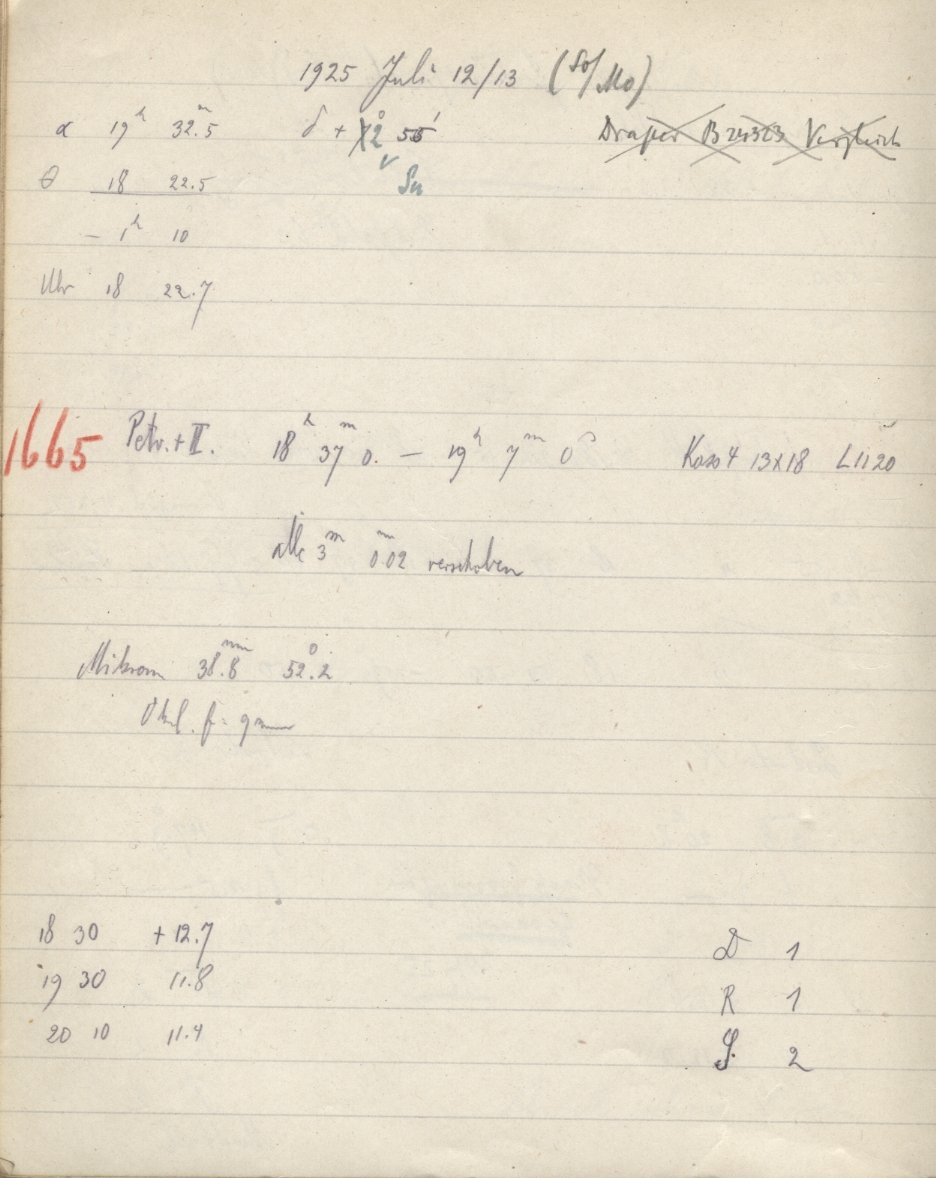 1925 Juli 12/13 (So/Mo)
α 19h 32m.5 δ + 12° 55' Draper B 24323 Vergleich
θ 18 22.5
− 1h 10
Uhr 18 22.7
1665 Petv. + II. 18h 37m 0. — 19h 7m 0s Kass 4 13x18 L 1120
alle 3m 0.02 mm verschoben
Mikrom 38.8 mm 52°.2
Okul. f = 9 mm
18 30 + 12.7 D 1
19 30 11.8 R 1
20 10 11.4 S. 2